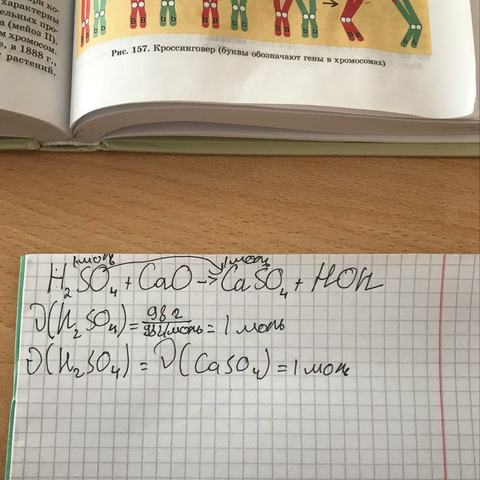 ери ко-
характерны
ельных про-
а (мейоз II),
м хромосом.
е, в 1888 г.,
растений.
B B b b B b B b B B
Рис. 157. Кроссинговер (буквы обозначают гены в хромосомах)
1 моль 1 моль
H2SO4 + CaO → CaSO4 + HOH
ν(H2SO4) = 98 г / 98 г/моль = 1 моль
ν(H2SO4) = ν(CaSO4) = 1 моль